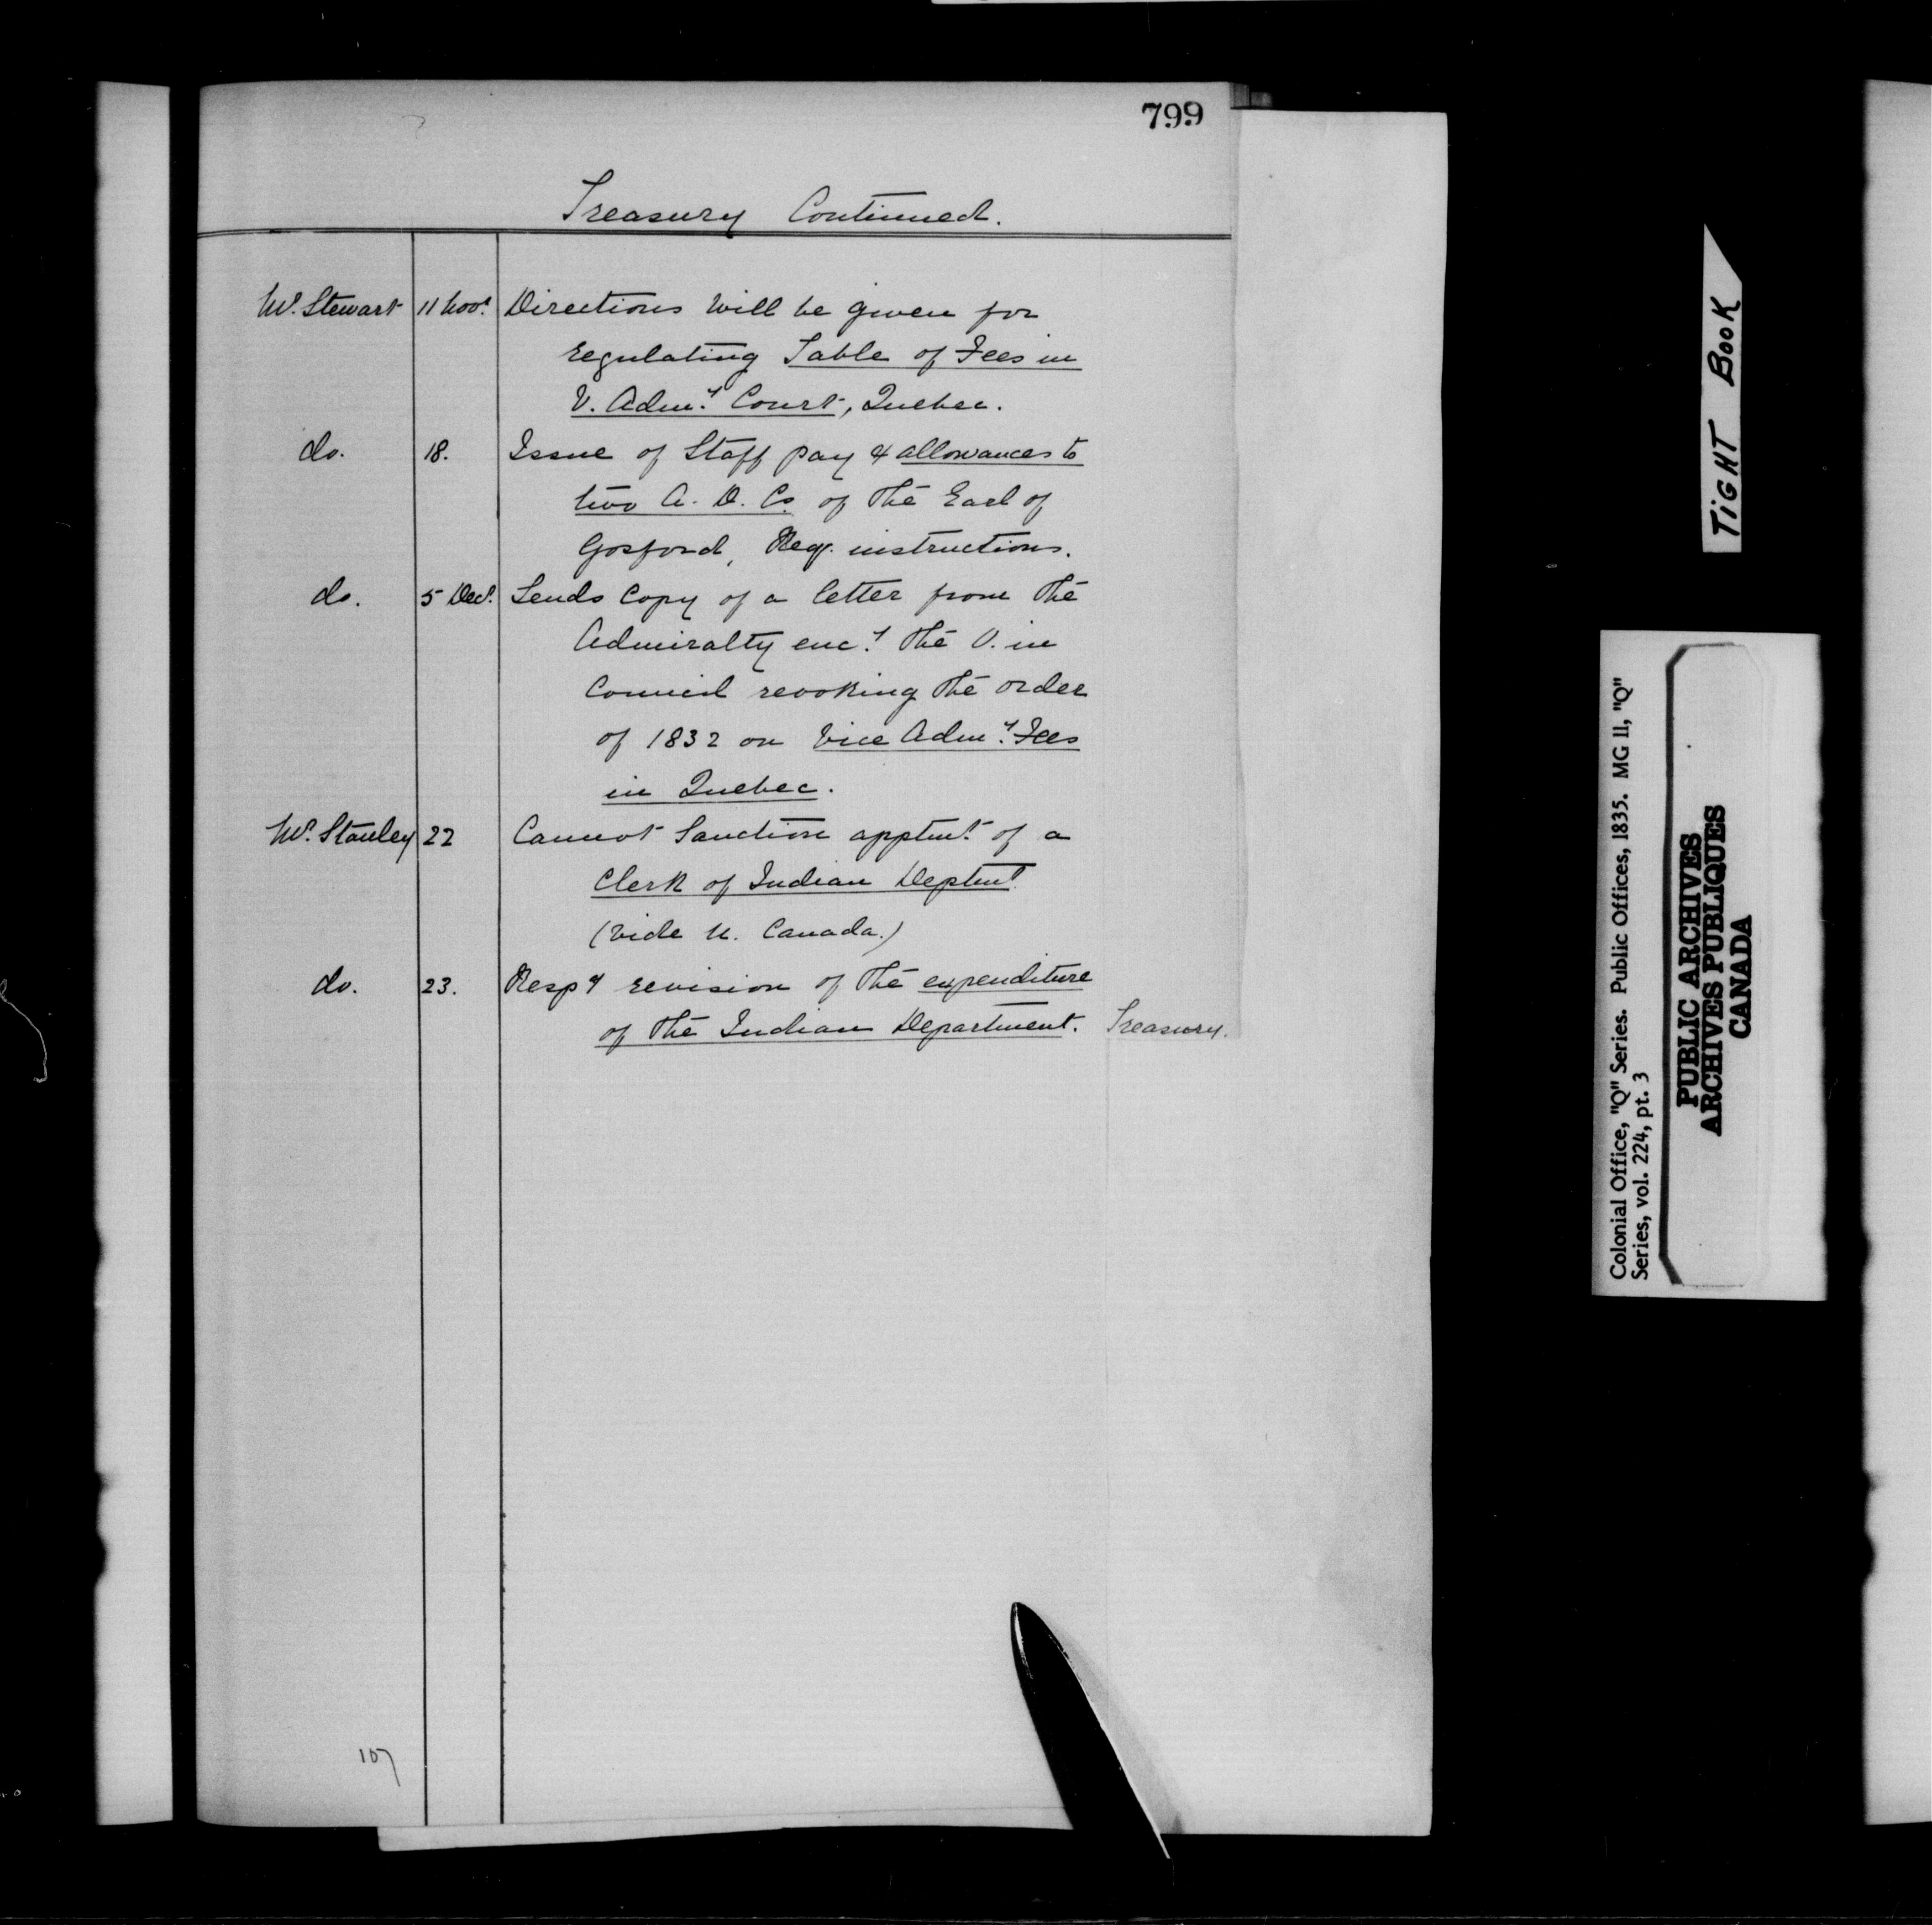 799
Treasury Continued.
Mr. Stewart 11 Novr. Directions will be given for
regulating Table of Fees in
V. Admy. Court, Quebec.
do. 18. Issue of Staff pay & allowances to
two A. D. Cs. of the Earl of
Gosford, Reqg. instructions.
do. 5 Decr. Sends Copy of a letter from the
Admiralty encg. the O. in
Council revoking the order
of 1832 on Vice Admy. Fees
in Quebec.
Mr. Stanley 22 Cannot Sanction apptmt. of a
Clerk of Indian Deptmt.
(Vide U. Canada.)
do. 23. Respg revision of the expenditure
of the Indian Department. Treasury.
107
TIGHT BOOK
Colonial Office, "Q" Series. Public Offices, 1835. MG 11, "Q"
Series, vol. 224, pt. 3
PUBLIC ARCHIVES
ARCHIVES PUBLIQUES
CANADA